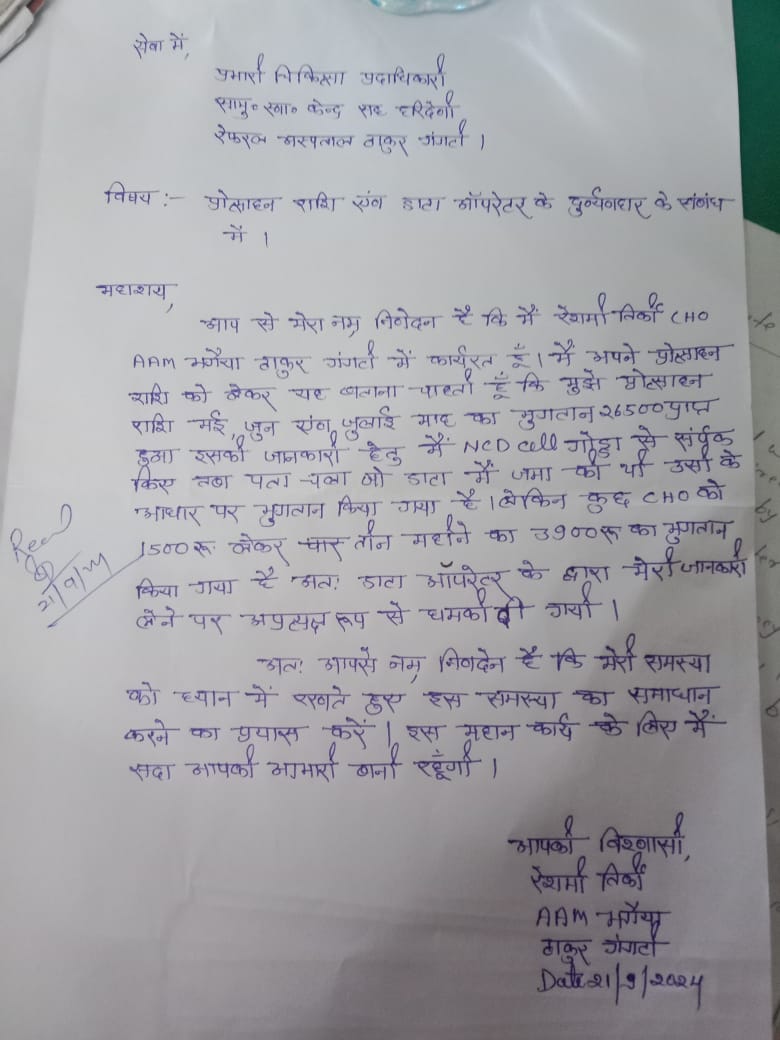 सेवा में,
प्रभारी चिकित्सा पदाधिकारी
सामु० स्वा० केन्द्र सह
रेफरल अस्पताल ठाकुर गंगटी ।
विषय :- प्रोत्साहन राशि एंव डाटा ऑपरेटर के दुर्व्यवहार के संबंध
में ।
महाशय,
आप से मेरा नम्र निवेदन है कि मैं रेशमी तिर्की CHO
AAM मगैया ठाकुर गंगटी में कार्यरत हूँ । मैं अपने प्रोत्साहन
राशि को लेकर यह बताना चाहती हूँ कि मुझे प्रोत्साहन
राशि मई, जुन एंव जुलाई माह का भुगतान 26500 प्राप्त
हुआ इसकी जानकारी हेतु मैं NCD Cell गोड्डा से संर्पक
किए तब पता चला जो डाटा मैं जमा की थी उसी के
आधार पर भुगतान किया गया है । लेकिन कुछ CHO को
1500रू लेकर चार तीन महीने का 3900रू का भुगतान
किया गया है अत: डाटा ऑपरेटर के द्वारा मेरी जानकारी
लेने पर अप्रत्यक्ष रूप से धमकी दी गयी ।
अत: आपसे नम्र निवदेन है कि मेरी समस्या
को ध्यान में रखते हुए इस समस्या का समाधान
करने का प्रयास करें । इस महान कार्य के लिए मैं
सदा आपकी आभारी बनी रहूँगी ।
आपकी विश्वासी,
रेशमी तिर्की
AAM मगैया
ठाकुर गंगटी
Date 21/9/2024
Recd
21/9/24